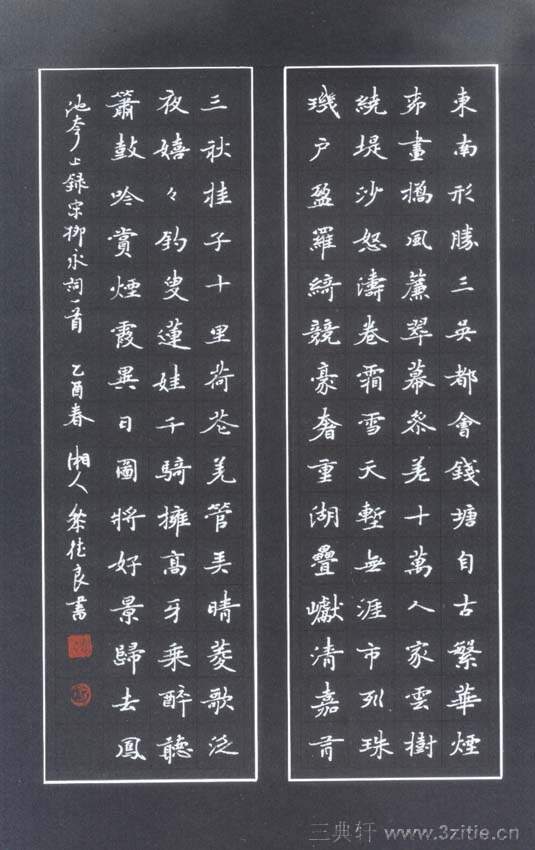 東南形勝三吳都會錢塘自古繁華煙
柳畫橋風簾翠幕參差十萬人家雲樹
繞堤沙怒濤卷霜雪天塹無涯市列珠
璣户盈羅綺競豪奢重湖疊巘清嘉有
三秋桂子十里荷花羌管弄晴菱歌泛
夜嬉々釣叟蓮娃千騎擁高牙乘醉聽
簫鼓吟賞煙霞異日圖將好景歸去鳳
池夸 上録宋柳永詞一首 乙酉春 湘人 德良書
三典轩 www.3zitie.cn